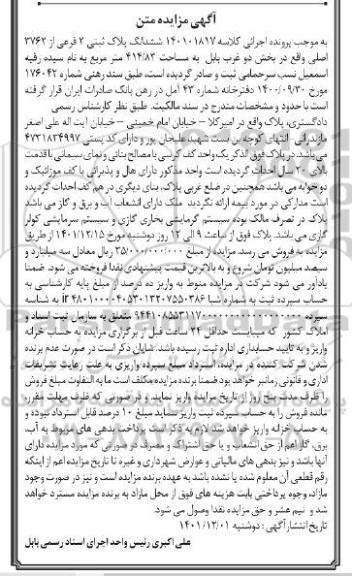 آگهی مزایده متن
به موجب پرونده اجرائی کلاسه ۱۴۰۱۰۱۸۱۷ ششدانگ پلاک ثبتی ۲ فرعی از ۳۷۶۲
اصلی واقع در بخش دو غرب بابل به مساحت ۴۱۴/۸۲ متر مربع به نام سیده رقیه
اسمعیل نسب سرحمامی ثبت و صادر گردیده است، طبق سند رهنی شماره ۱۷۶۰۴۲
مورخ ۱۴۰۰/۰۹/۳۰ دفترخانه شماره ۴۳ آمل در رهن بانک صادرات ایران قرار گرفته
است با حدود و مشخصات مندرج در سند مالکیت. طبق نظر کارشناس رسمی
دادگستری، پلاک واقع در امیرکلا – خیابان امام خمینی – خیابان آیت اله علی اصغر
مازندرانی انتهای کوچه بن بست شهید علیجان پور و دارای کد پستی ۴۷۳۱۸۳۴۹۹۷
می باشد. در پلاک فوق الذکر یک واحد کف کرسی با مصالح بنائی و نمای سیمانی با قدمت
بالای ۲۰ سال احداث گردیده است واحد مذکور دارای هال و پذیرائی با کف موزائیک و
دو خوابه می باشد همچنین در ضلع غربی پلاک، بنای دیگری در هم کف احداث گردیده
است مدارکی در مورد بیمه ارائه نگردید. ملک دارای انشعاب آب و برق و گاز می باشد
پلاک در تصرف مالک بوده سیستم گرمایشی بخاری گازی و سیستم سرمایشی کولر
گازی می باشد. پلاک فوق از ساعت ۹ الی ۱۲ روز دوشنبه مورخ ۱۴۰۱/۱۲/۱۵ از طریق
مزایده به فروش می رسد. مزایده از مبلغ ۳۵/۰۰۰/۰۰۰/۰۰۰ ریال معادل سه میلیارد و
سیصد میلیون تومان شروع و به بالاترین قیمت پیشنهادی نقدا فروخته می شود. ضمنا
یادآور می شود شرکت در مزایده منوط به واریز ده درصد از مبلغ پایه کارشناسی به
حساب سپرده ثبت به شماره شبا ir به شناسه
سپرده متعلق به سازمان ثبت اسناد و
املاک کشور که میبایست حداقل ۲۴ ساعت قبل از برگزاری مزایده به حساب خزانه
واریز و به تایید حسابداری اداره ثبت رسیده باشد. شایان ذکر است در صورت عدم برنده
شدن شرکت کننده در مزایده، استرداد مبلغ سپرده واریزی به علت رعایت تشریفات
اداری و قانونی زمانبر خواهد بود ضمنا برنده مزایده مکلف است ما به التفاوت مبلغ فروش
را ظرف مدت پنج روز از تاریخ مزایده واریز نماید و در صورتی که ظرف مهلت مقرر
مانده فروش را به حساب سپرده ثبت واریز ننماید مبلغ ۱۰ درصد قابل استرداد نبوده و
به حساب خزانه واریز خواهد شد لازم به ذکر است پرداخت بدهی های مربوط به آب،
برق، گاز اعم از حق انشعاب و یا حق اشتراک و مصرف در صورتی که مورد مزایده دارای
آنها باشد و نیز بدهی های مالیاتی و عوارض شهرداری و غیره تا تاریخ مزایده اعم از اینکه
رقم قطعی آن معلوم شده یا نشده باشد به عهده برنده مزایده است و نیز در صورت وجود
مازاد، وجوه پرداختی بابت هزینه های فوق از محل مازاد به برنده مزایده مسترد خواهد
شد و نیم عشر و حق مزایده نقدا وصول می شود.
تاریخ انتشار آگهی: دوشنبه ۱۴۰۱/۱۲/۰۱
علی اکبری رئیس واحد اجرای اسناد رسمی بابل